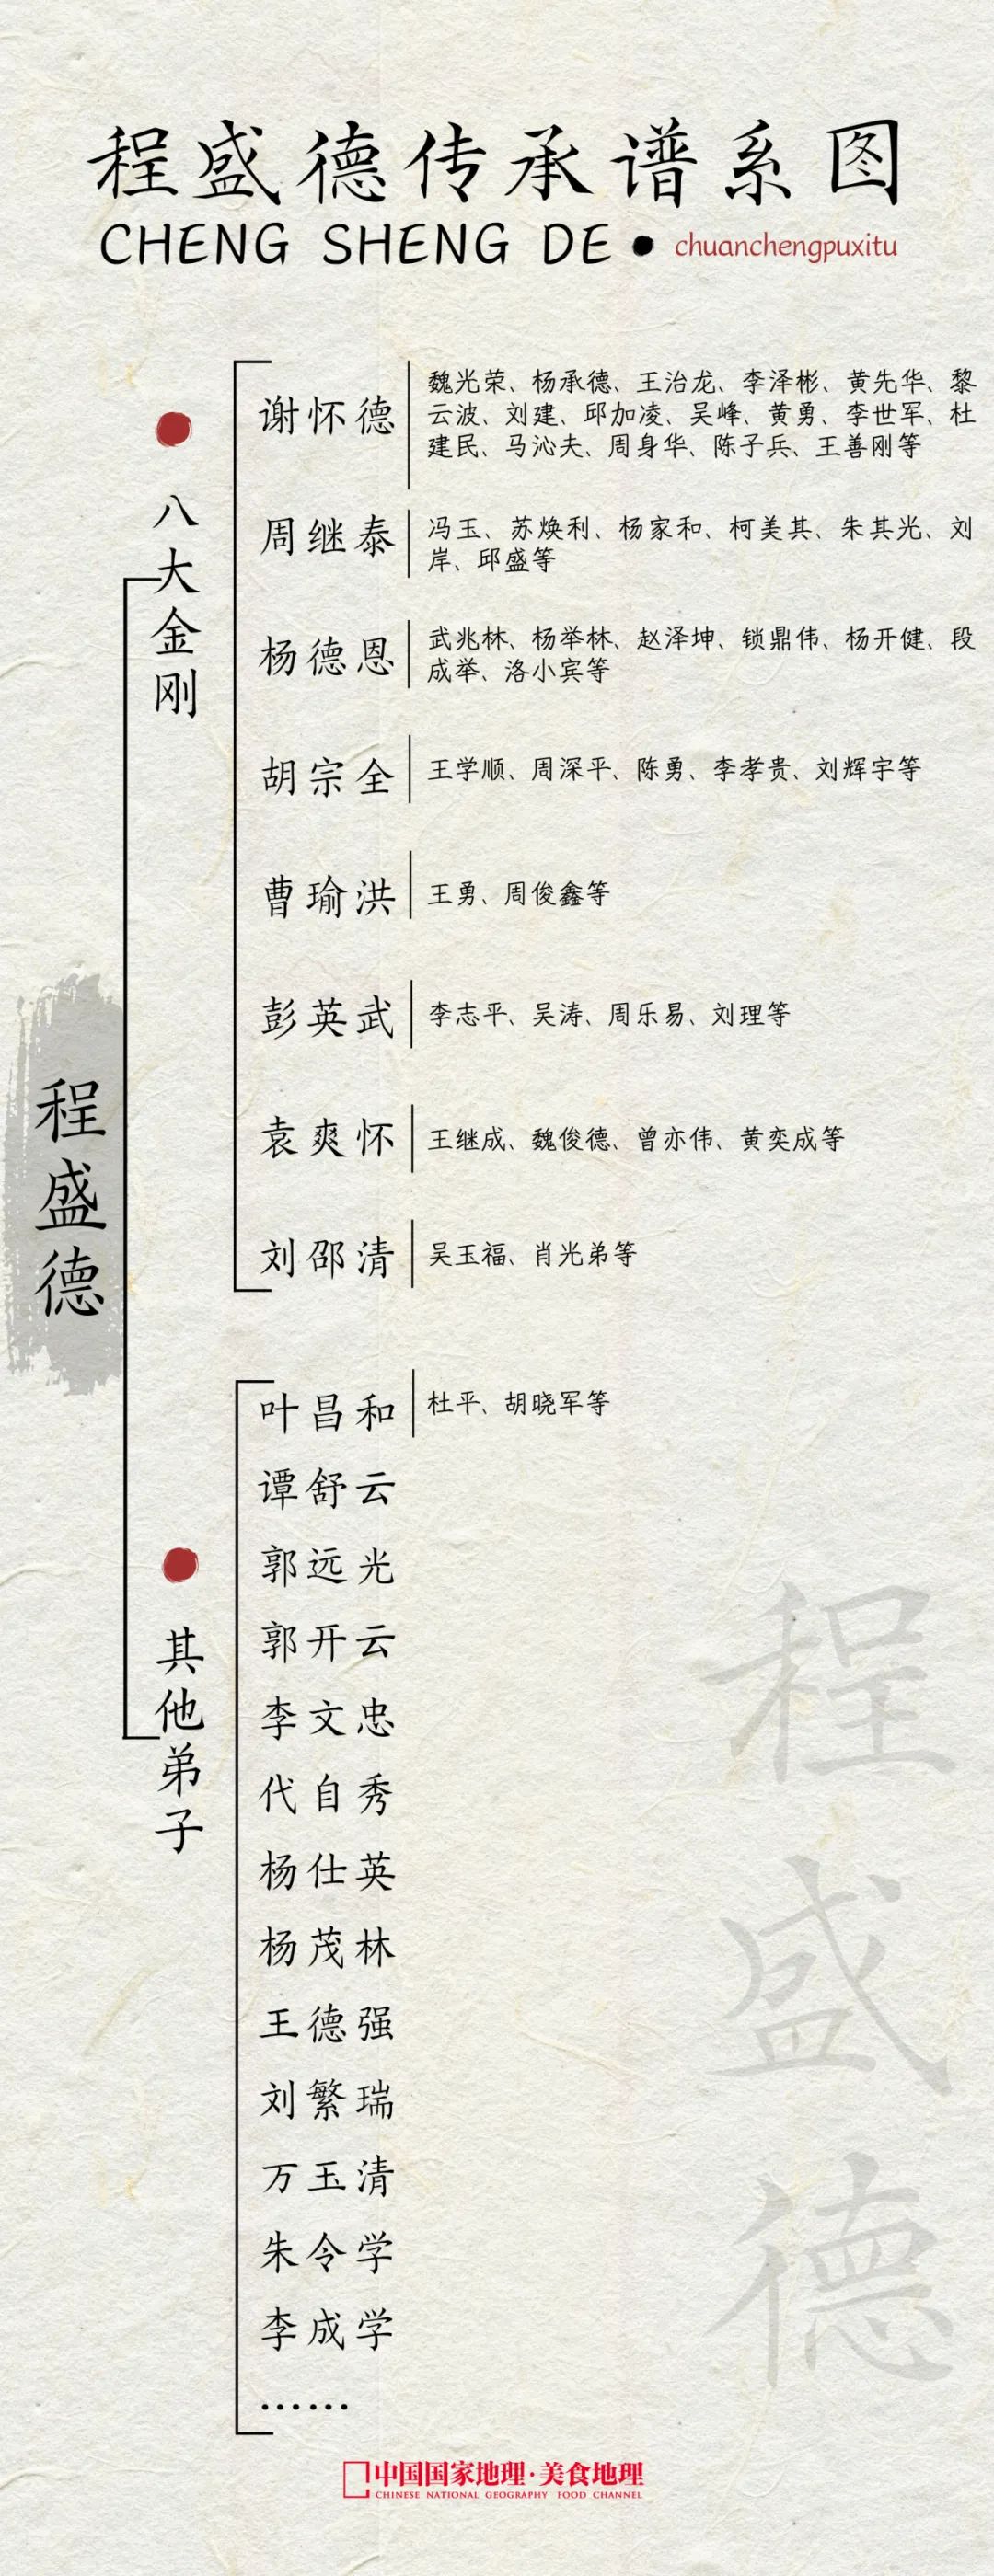 程盛德传承谱系图
CHENG SHENG DE ● chuanchengpuxitu
程盛德
八大金刚
谢怀德
魏光荣、杨承德、王治龙、李泽彬、黄先华、黎
云波、刘建、邱加凌、吴峰、黄勇、李世军、杜
建民、马沁夫、周身华、陈子兵、王善刚等
周继泰
冯玉、苏焕利、杨家和、柯美其、朱其光、刘
岸、邱盛等
杨德恩
武兆林、杨举林、赵泽坤、锁鼎伟、杨开健、段
成举、洛小宾等
胡宗全
王学顺、周深平、陈勇、李孝贵、刘辉宇等
曹瑜洪
王勇、周俊鑫等
彭英武
李志平、吴涛、周乐易、刘理等
袁爽怀
王继成、魏俊德、曾亦伟、黄奕成等
刘邵清
吴玉福、肖光弟等
其他弟子
叶昌和
杜平、胡晓军等
谭舒云
郭远光
郭开云
李文忠
代自秀
杨仕英
杨茂林
王德强
刘繁瑞
万玉清
朱令学
李成学
……
程盛德
中国国家地理·美食地理
CHINESE NATIONAL GEOGRAPHY FOOD CHANNEL